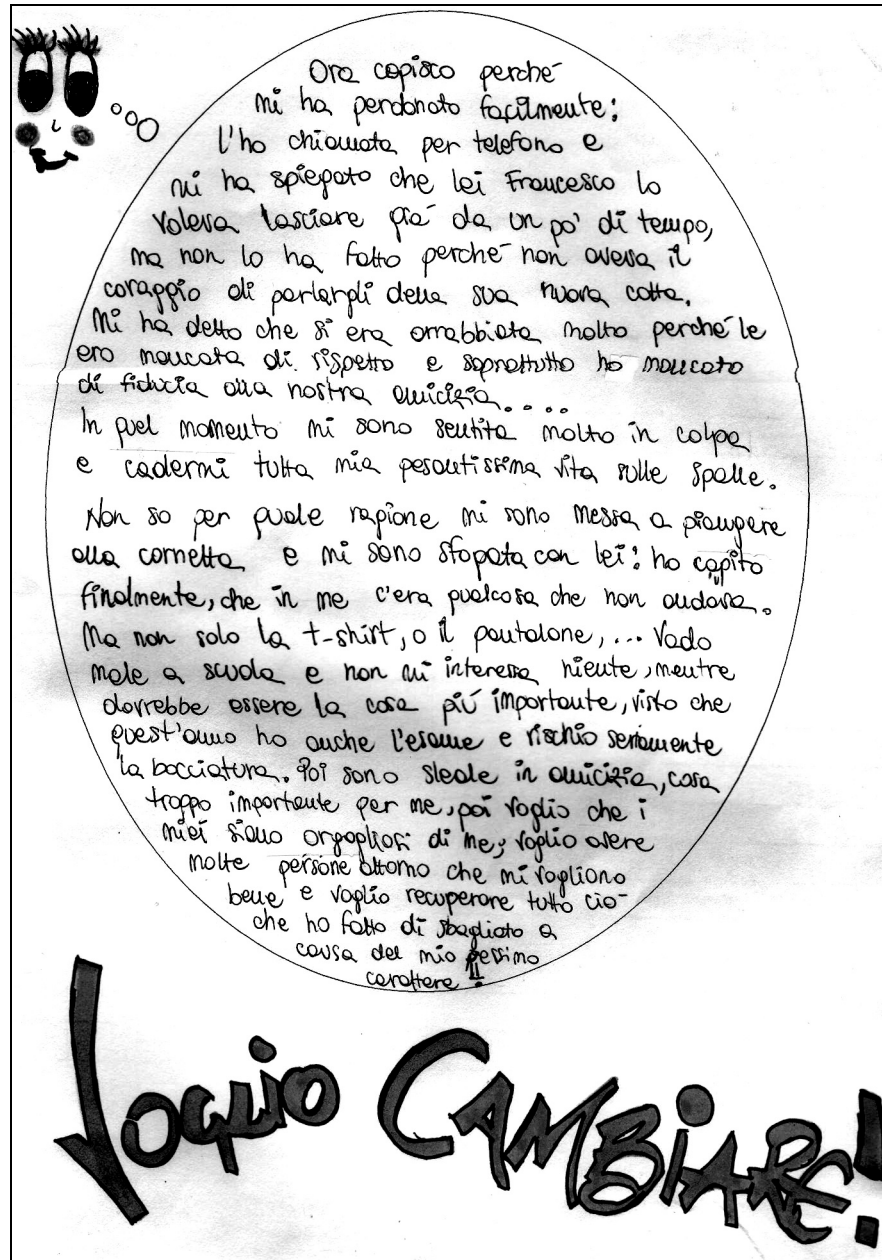 Ora capisco perché
mi ha perdonato facilmente:
l'ho chiamata per telefono e
mi ha spiegato che lei Francesco lo
voleva lasciare già da un po' di tempo,
ma non lo ha fatto perché non aveva il
coraggio di parlargli della sua nuova cotta.
Mi ha detto che si era arrabbiata molto perché le
ero mancata di rispetto e soprattutto ho mancato
di fiducia alla nostra amicizia....
In quel momento mi sono sentita molto in colpa
e cadermi tutta mia pesantissima vita sulle spalle.
Non so per quale ragione mi sono messa a piangere
alla cornetta e mi sono sfogata con lei: ho capito
finalmente, che in me c'era qualcosa che non andava.
Ma non solo la t-shirt, o il pantalone,... Vado
male a scuola e non mi interessa niente, mentre
dovrebbe essere la cosa più importante, visto che
quest'anno ho anche l'esame e rischio seriamente
la bocciatura. Poi sono sleale in amicizia, cosa
troppo importante per me, poi voglio che i
miei siano orgogliosi di me; voglio avere
molte persone attorno che mi vogliono
bene e voglio recuperare tutto ciò
che ho fatto di sbagliato a
causa del mio pessimo
carattere!!
VOGLIO CAMBIARE!